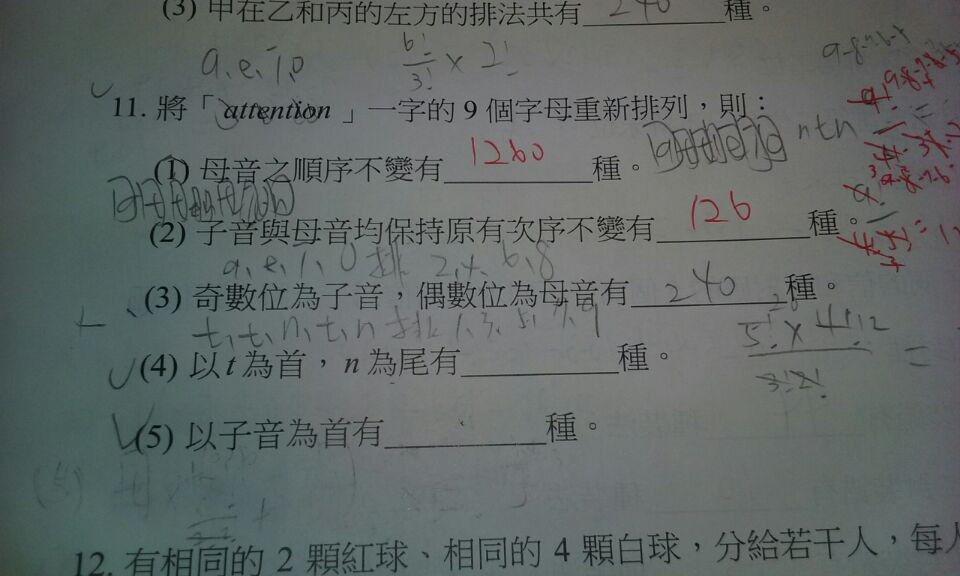 (3) 甲在乙和丙的左方的排法共有 240 種。
a.e.i.o 6!/3! × 2!
11. 將「attention」一字的 9 個字母重新排列，則：
(1) 母音之順序不變有 1260 種。
(2) 子音與母音均保持原有次序不變有 126 種。
a、e、i、o 排 2、4、6、8
(3) 奇數位為子音，偶數位為母音有 240 種。
t、t、n、t、n 排 1、3、5、7、9
5! × 4!
3!2! =
(4) 以 t 為首，n 為尾有 種。
(5) 以子音為首有 種。
12. 有相同的 2 顆紅球、相同的 4 顆白球，分給若干人，每人